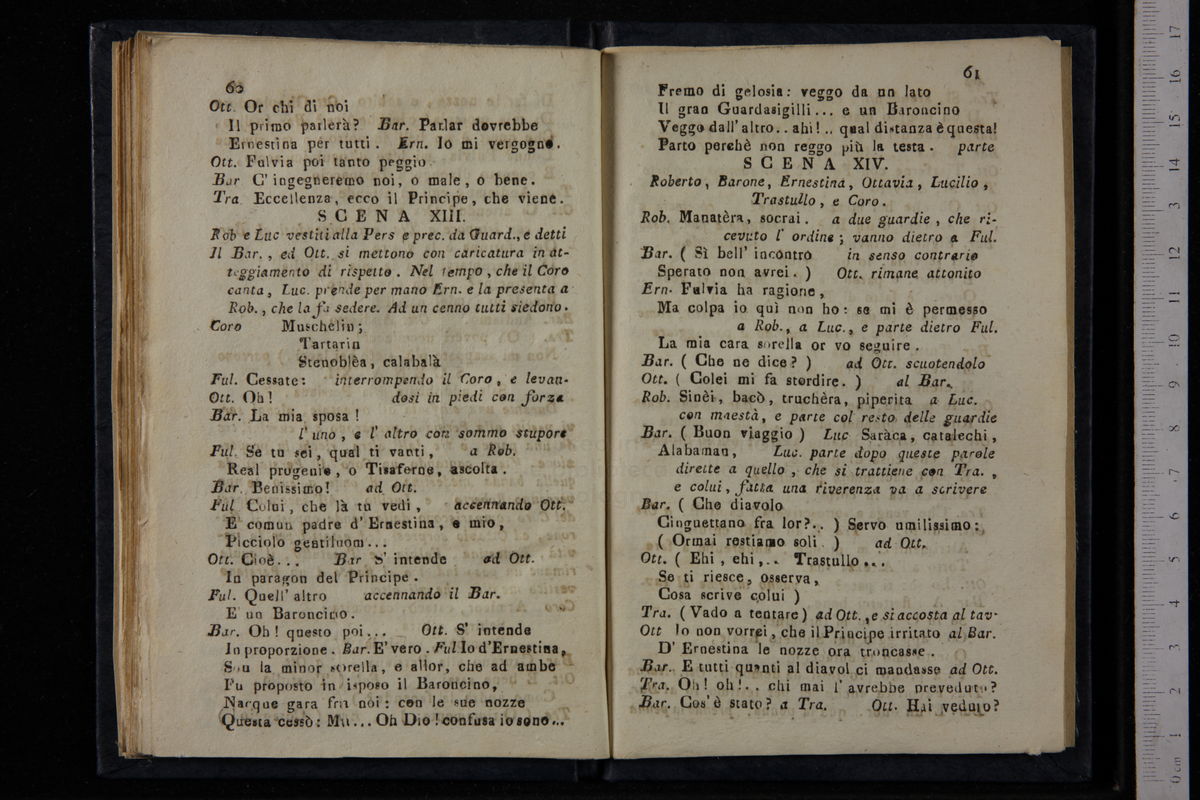 60
Ott. Or chi di noi
Il primo parlerà? Bar. Parlar dovrebbe
Ernestina per tutti. Ern. Io mi vergogno.
Ott. Fulvia poi tanto peggio.
Bar C'ingegneremo noi, o male, o bene.
Tra Eccellenza, ecco il Principe, che viene.
SCENA XIII.
Rob e Luc vestiti alla Pers e prec. da Guard., e detti
Il Bar., ed Ott. si mettono con caricatura in at-
teggiamento di rispetto. Nel tempo, che il Coro
canta, Luc. prende per mano Ern. e la presenta a
Rob., che la fa sedere. Ad un cenno tutti siedono.
Coro Muschelin;
Tartarin
Stenoblèa, calabalà
Ful. Cessate: interrompendo il Coro, e levan-
Ott. Oh! dosi in piedi con forza
Bar. La mia sposa!
l'uno, e l'altro con sommo stupore
Ful. Se tu sei, qual ti vanti, a Rob.
Real progenie, o Tisaferne, ascolta.
Bar. Benissimo! ad Ott.
Ful Colui, che là tu vedi, accennando Ott.
E comun padre d'Ernestina, e mio,
Picciolo gentiluom...
Ott. Cioè... Bar S'intende ad Ott.
In paragon del Principe.
Ful. Quell'altro accennando il Bar.
E un Baroncino.
Bar. Oh! questo poi... Ott. S'intende
In proporzione. Bar. E'vero. Ful Io d'Ernestina,
Son la minor sorella, e allor, che ad ambe
Fu proposto in isposo il Baroncino,
Nacque gara fra noi: con le sue nozze
Questa cessò: Ma... Oh Dio! confusa io sono...
61
Fremo di gelosia: veggo da un lato
Il gran Guardasigilli... e un Baroncino
Veggo dall'altro.. ahi!.. qual distanza è questa!
Parto perchè non reggo più la testa. parte
SCENA XIV.
Roberto, Barone, Ernestina, Ottavia, Lucilio,
Trastullo, e Coro.
Rob. Manatèra, socrai. a due guardie, che ri-
cevuto l'ordine; vanno dietro a Ful.
Bar. ( Sì bell' incontro in senso contrario
Sperato non avrei. ) Ott. rimane attonito
Ern. Fulvia ha ragione,
Ma colpa io quì non ho: se mi è permesso
a Rob., a Luc., e parte dietro Ful.
La mia cara sorella or vo seguire.
Bar. ( Che ne dice? ) ad Ott. scuotendolo
Ott. ( Colei mi fa stordire. ) al Bar.
Rob. Sinèi, bacò, truchèra, piperita a Luc.
con maestà, e parte col resto delle guardie
Bar. ( Buon viaggio ) Luc Saràca, catalechi,
Alabaman, Luc. parte dopo queste parole
dirette a quello, che si trattiene con Tra.,
e colui, fatta una riverenza va a scrivere
Bar. ( Che diavolo
Cinguettano fra lor?.. ) Servo umilissimo:
( Ormai restiamo soli. ) ad Ott.
Ott. ( Ehi, ehi,.. Trastullo...
Se ti riesce, osserva,
Cosa scrive colui )
Tra. ( Vado a tentare) ad Ott., e si accosta al tav-
Ott Io non vorrei, che il Principe irritato al Bar.
D'Ernestina le nozze ora troncasse.
Bar. E tutti quanti al diavol ci mandasse ad Ott.
Tra. Oh! oh!.. chi mai l'avrebbe preveduto?
Bar. Cos'è stato? a Tra. Ott. Hai veduto?